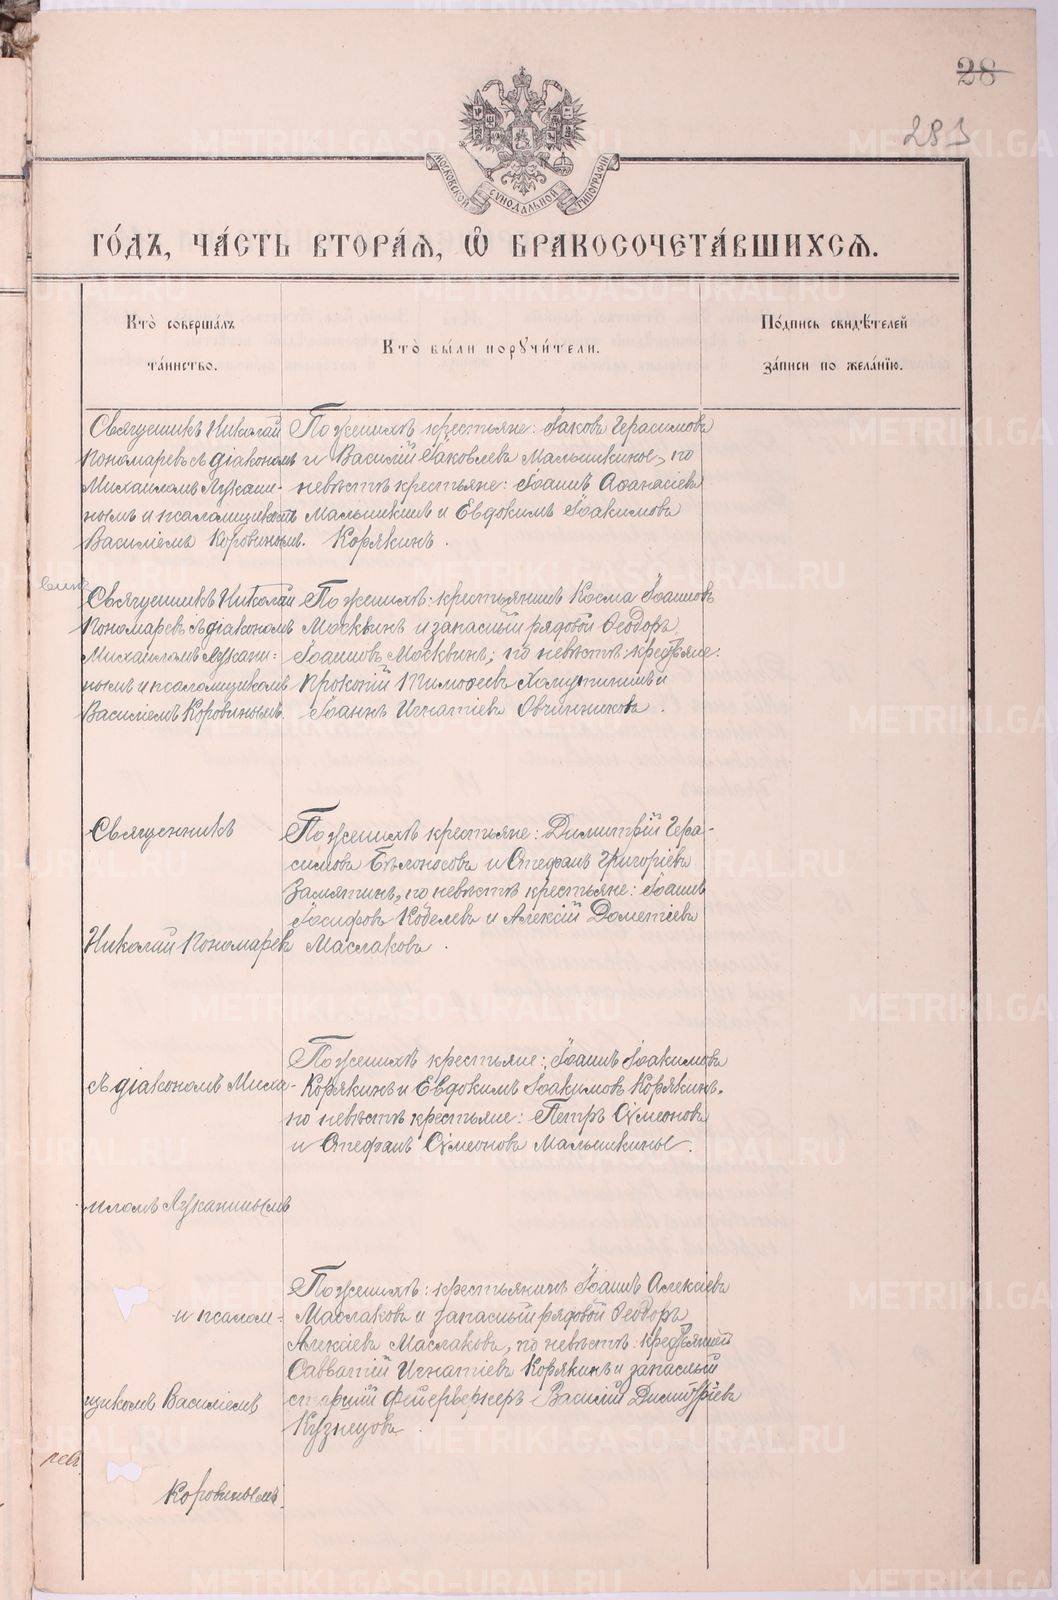 28
283
МОСКОВСКОЙ СѴНОДАЛЬНОЙ ТИПОГРАФІИ
ГО́ДЪ, ЧА́СТЬ ВТОРА́Я, Ѿ БРАКОСОЧЕТА́ВШИХСЯ.
Кто̀ соверша́лъ
та́инство.
Кто̀ бы́ли порꙋчи́тели.
По́дпись свидѣ́телей
за́писи по жела́нїю.
Священникъ Николай
Пономаревъ съ діакономъ
Михаиломъ Лукани-
нымъ и псаломщикомъ
Василіемъ Коровинымъ.
По женихѣ крестьяне: Іаковъ Герасимовъ
и Василій Іаковлевъ Малышкины, по
невѣстѣ крестьяне: Іоаннъ Аѳанасіевъ
Малышкинъ и Евдокимъ Іоакимовъ
Корякинъ.
Священникъ Николай
Пономаревъ съ діакономъ
Михаиломъ Лукани-
нымъ и псаломщикомъ
Василіемъ Коровинымъ.
По женихѣ: крестьянинъ Косма Іоанновъ
Москвинъ и запасный рядовой Ѳеодоръ
Іоанновъ Москвинъ; по невѣстѣ крестьяне:
Прокопій Тимоѳеевъ Халутининъ и
Іоаннъ Игнатіевъ Овчинниковъ.
Священникъ
Николай Пономаревъ
съ діакономъ Миха-
иломъ Луканинымъ
и псалом-
щикомъ Василіемъ
Коровинымъ.
По женихѣ крестьяне: Димитрій Гера-
симовъ Бѣлоносовъ и Стефанъ Григоріевъ
Замятинъ, по невѣстѣ крестьяне: Іоаннъ
Іосифовъ Кобелевъ и Алексій Дометіевъ
Маслаковъ.
По женихѣ крестьяне: Іоаннъ Іоакимовъ
Корякинъ и Евдокимъ Іоакимовъ Корякинъ,
по невѣстѣ крестьяне: Петръ Сѵмеоновъ
и Стефанъ Сѵмеоновъ Малышкины.
По женихѣ: крестьянинъ Іоаннъ Алексіевъ
Маслаковъ и запасный рядовой Ѳеодоръ
Алексіевъ Маслаковъ, по невѣстѣ: крестьянинъ
Савватій Игнатіевъ Корякинъ и запасный
старшій фейерверкеръ Василій Димитріевъ
Кузнецовъ.